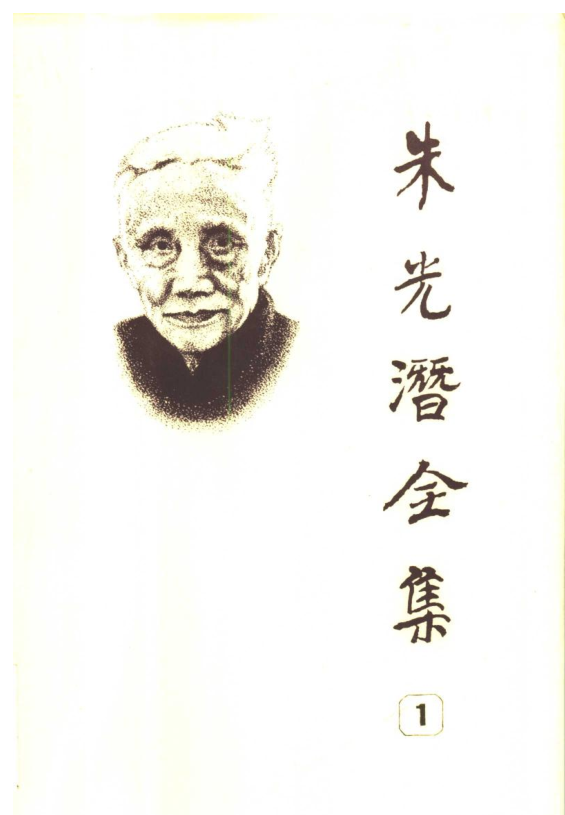 朱光潛全集
1